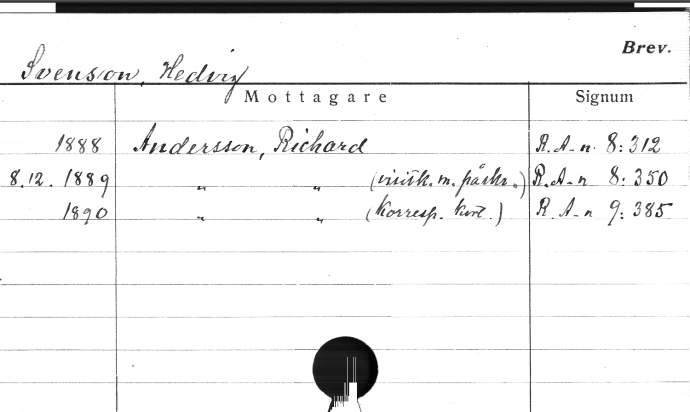 Brev.
Svenson, Hedvig
Mottagare Signum
1888 Andersson, Richard R.A-n. 8:312
8.12.1889 " " (visitk. m. påskr.) R.A-n 8:350
1890 " " (korresp. kort.) R.A-n 9:385